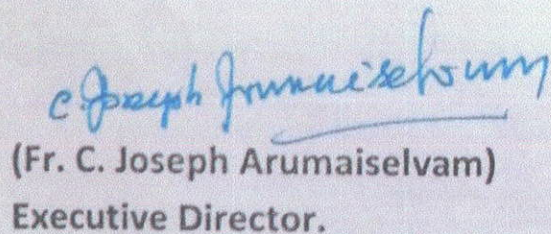 C. Joseph Arumaiselvam
(Fr. C. Joseph Arumaiselvam)
Executive Director.